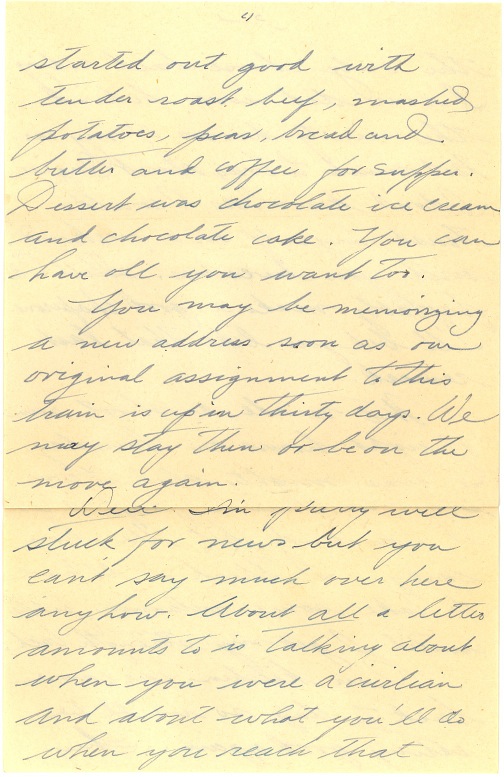 4)
started out good with
tender roast beef, mashed
potatoes, peas, bread and
butter and coffee for supper.
Dessert was chocolate ice cream
and chocolate cake. You can
have all you want too.
You may be memorizing
a new address soon as our
original assignment to this
train is up in thirty days. We
may stay then or be on the
move again.
Well I'm pretty well
stuck for news but you
can't say much over here
anyhow. About all a letter
amounts to is talking about
when you were a civilian
and about what you'll do
when you reach that